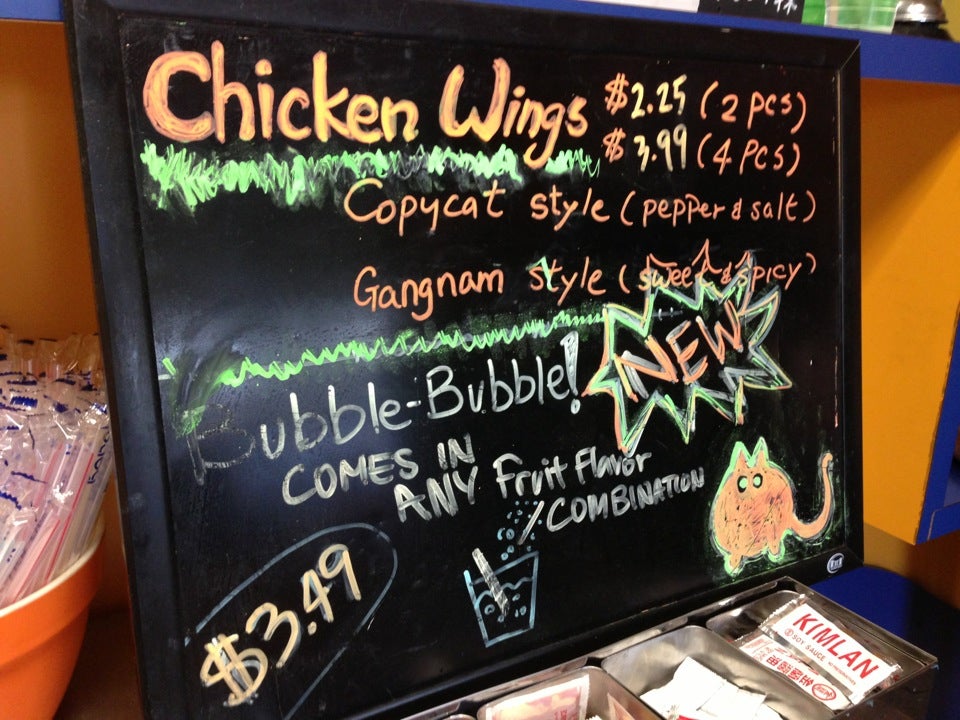 Chicken Wings $2.25 (2 pcs)
$3.99 (4 pcs)
Copycat style (pepper & salt)
Gangnam style (sweet & spicy)
NEW
Bubble-Bubble!
COMES IN
ANY Fruit Flavor
/COMBINATION
$3.49
KIMLAN
SOY SAUCE